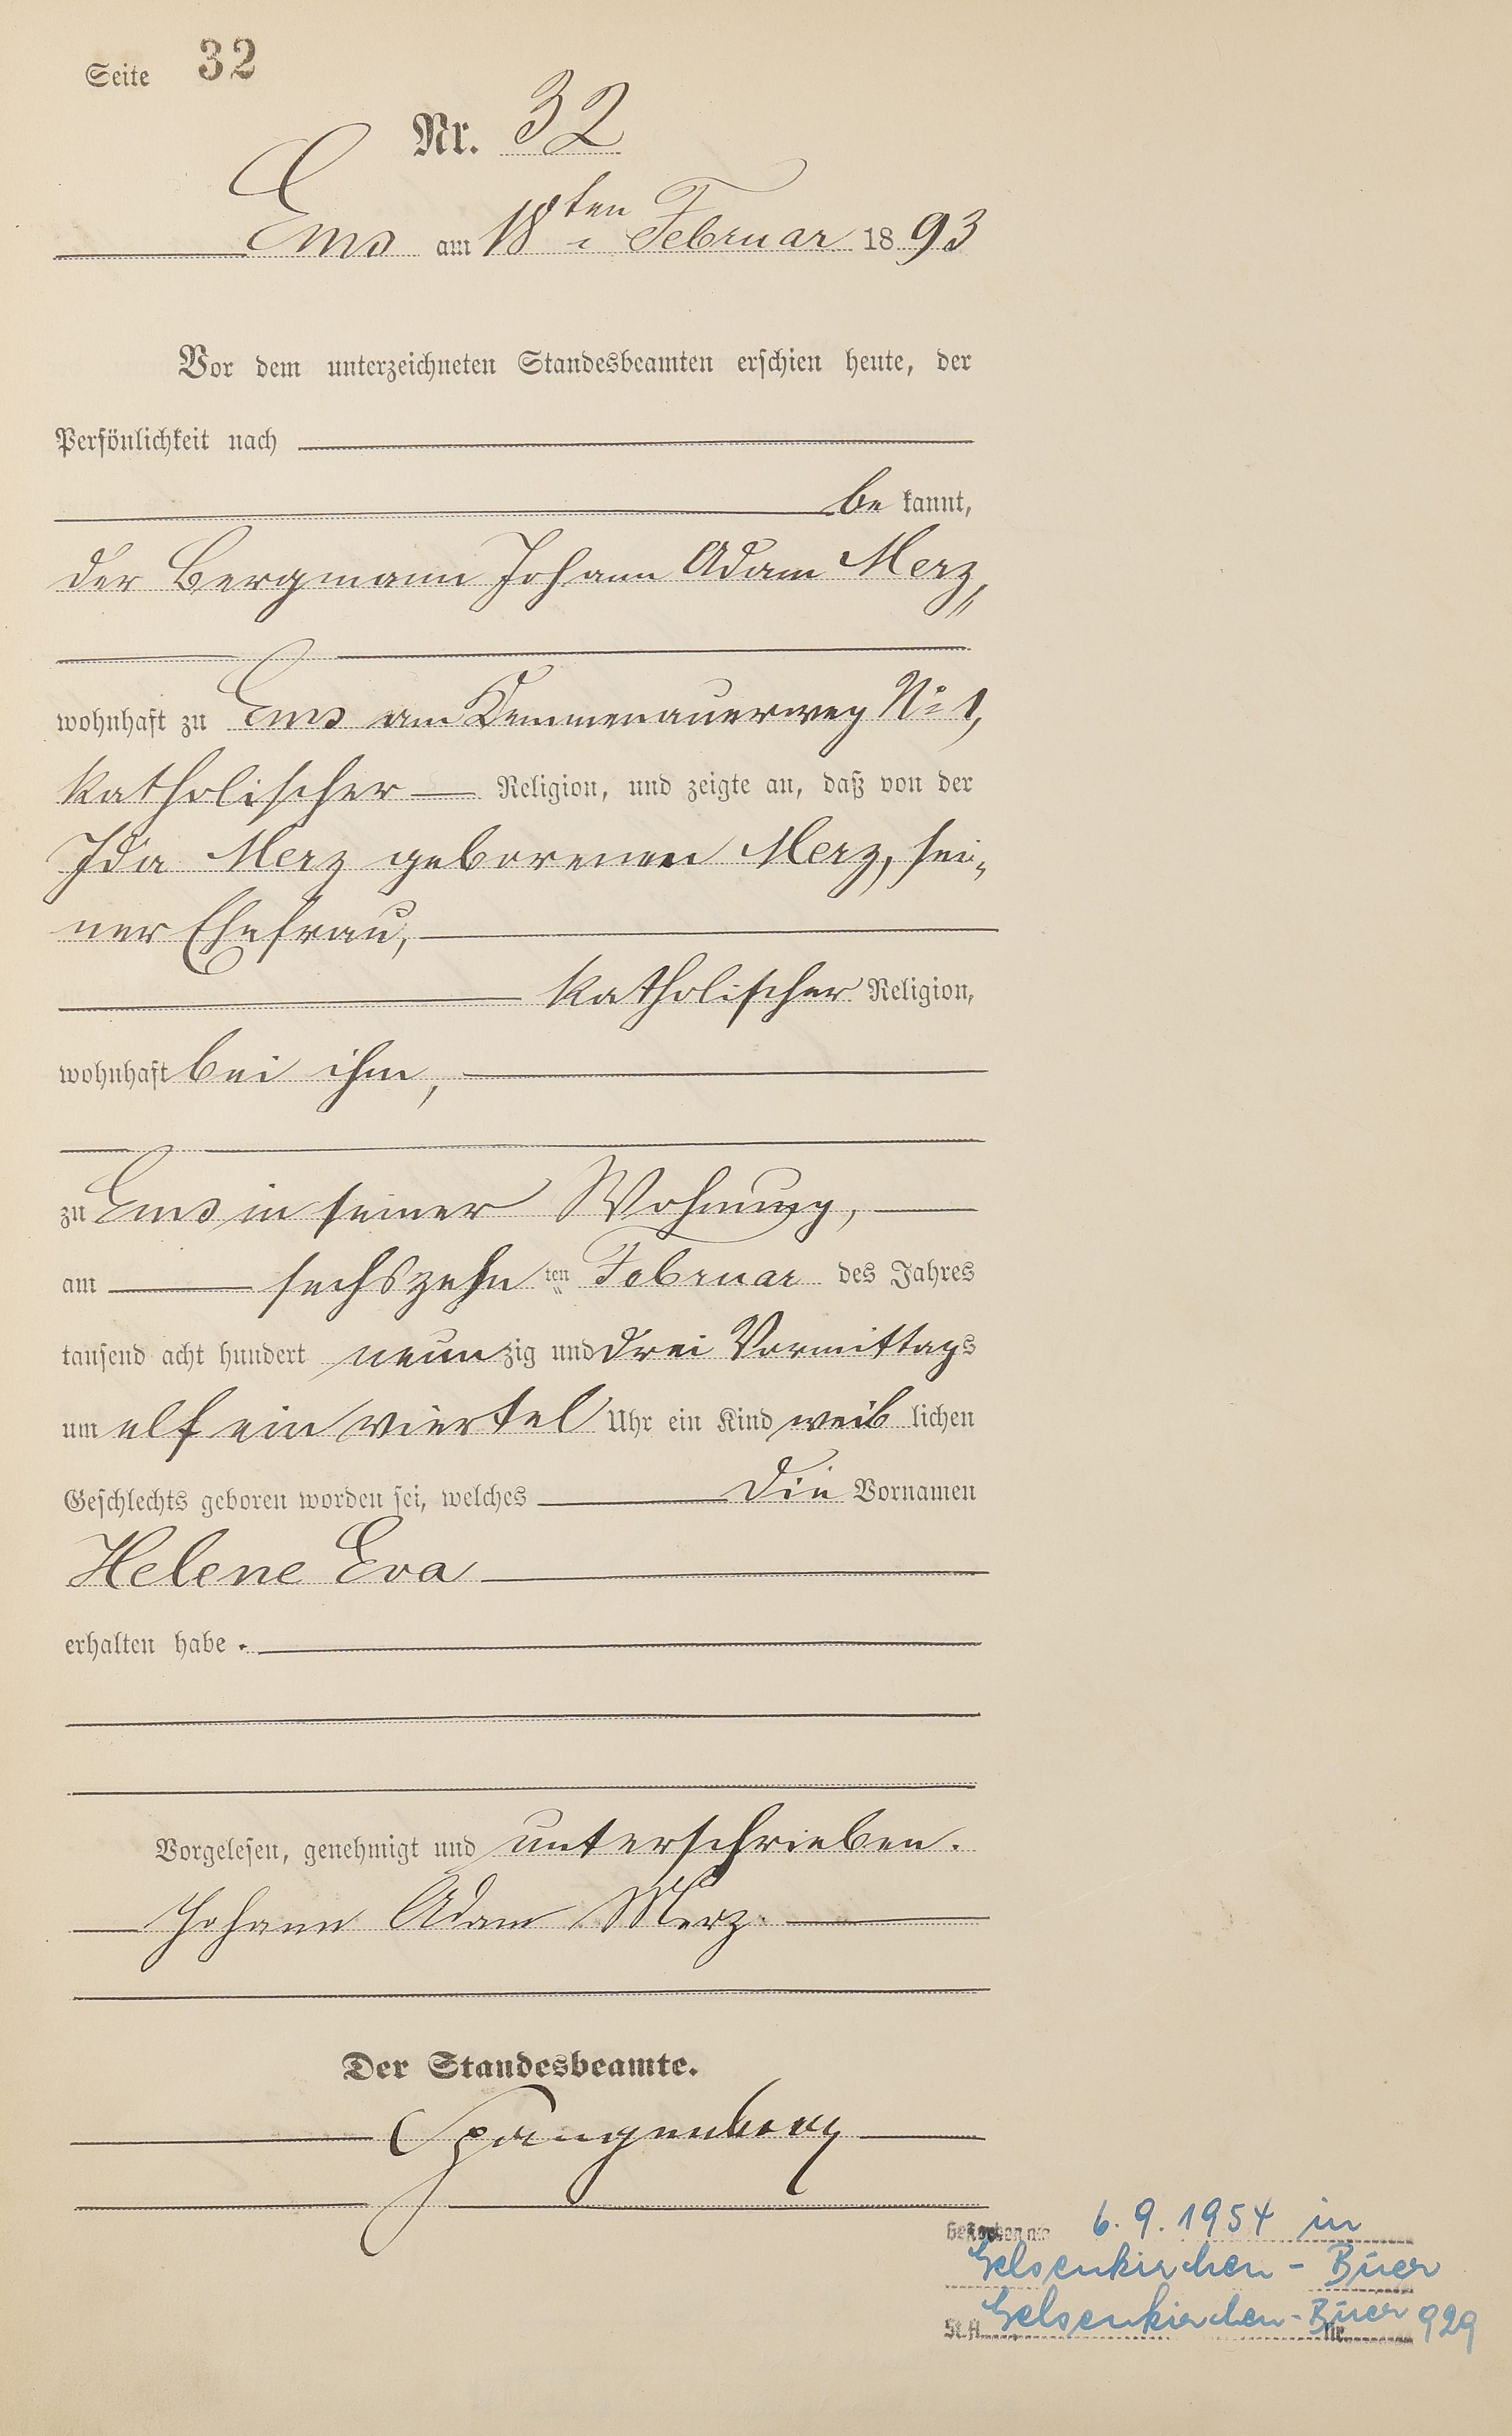 Seite 32
Nr. 32
Ems am 18ten Februar 1893
Vor dem unterzeichneten Standesbeamten erschien heute, der
Persönlichkeit nach
be kannt,
der Bergmann Johann Adam Merz,
wohnhaft zu Ems am Kemmenauerweg No 1,
katholischer Religion, und zeigte an, daß von der
Ida Merz geborenen Merz, sei-
ner Ehefrau,
katholischer Religion,
wohnhaft bei ihm,
zu Ems in seiner Wohnung,
am sechszehn ten Februar des Jahres
tausend acht hundert neunzig und drei Vormittags
um elf ein viertel Uhr ein Kind weib lichen
Geschlechts geboren worden sei, welches die Vornamen
Helene Eva
erhalten habe.
Vorgelesen, genehmigt und unterschrieben.
Johann Adam Merz.
Der Standesbeamte.
Spangenberg
Gestorben am 6.9.1954 in
Gelsenkirchen-Buer
St.A. Gelsenkirchen-Buer Nr. 929